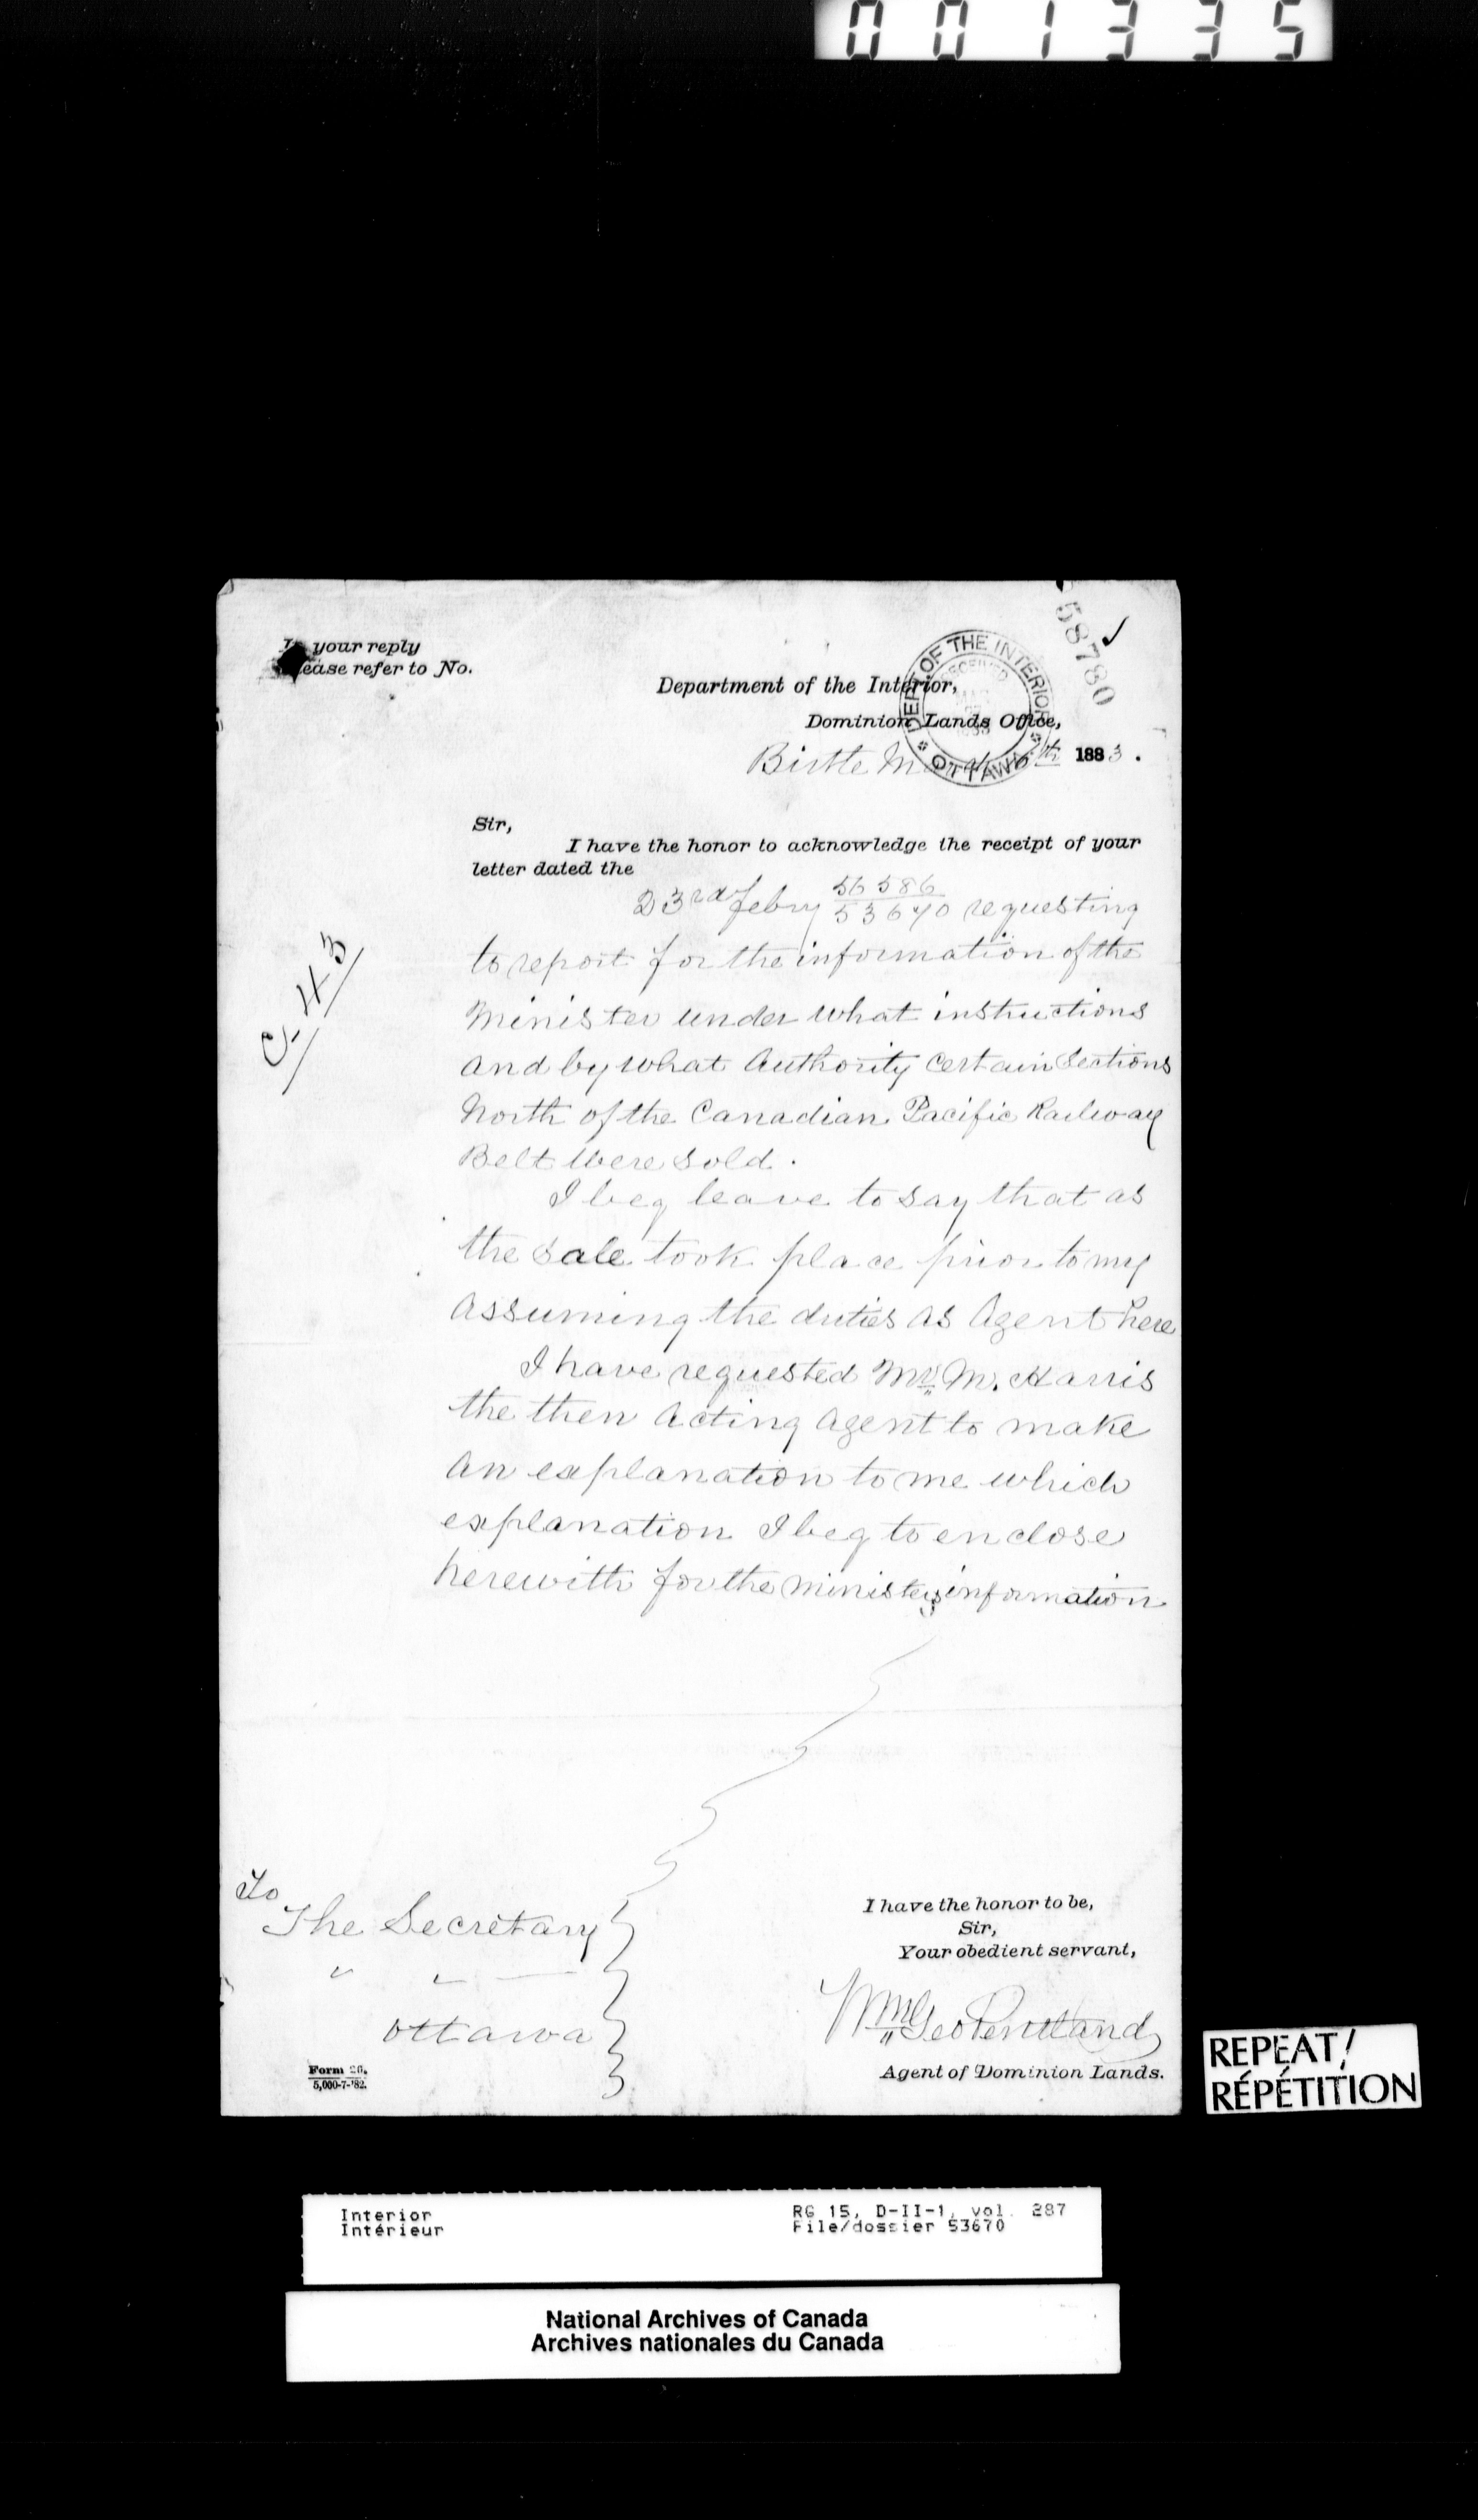 001335
In your reply
Please refer to No.
58780
DEPT. OF THE INTERIOR
RECEIVED
OTTAWA
Department of the Interior,
Dominion Lands Office,
Birtle March 6th 1883.
Sir,
I have the honor to acknowledge the receipt of your
letter dated the
23rd Febry 56586/53670 requesting
to report for the information of the
Minister under what instructions
and by what Authority Certain Sections
North of the Canadian Pacific Railway
Belt were sold.
I beg leave to say that as
the sale took place prior to my
Assuming the duties as Agent here
I have requested Mr. M. Harris
the then Acting Agent to make
An explanation to me which
explanation I beg to enclose
herewith for the Ministers information
To
The Secretary
" "
Ottawa
I have the honor to be,
Sir,
Your obedient servant,
Wm Geo Pentland
Agent of Dominion Lands.
Form 26.
5,000-7-'82.
REPEAT/
RÉPÉTITION
Interior
Intérieur
RG 15, D-II-1, vol. 287
File/dossier 53670
National Archives of Canada
Archives nationales du Canada